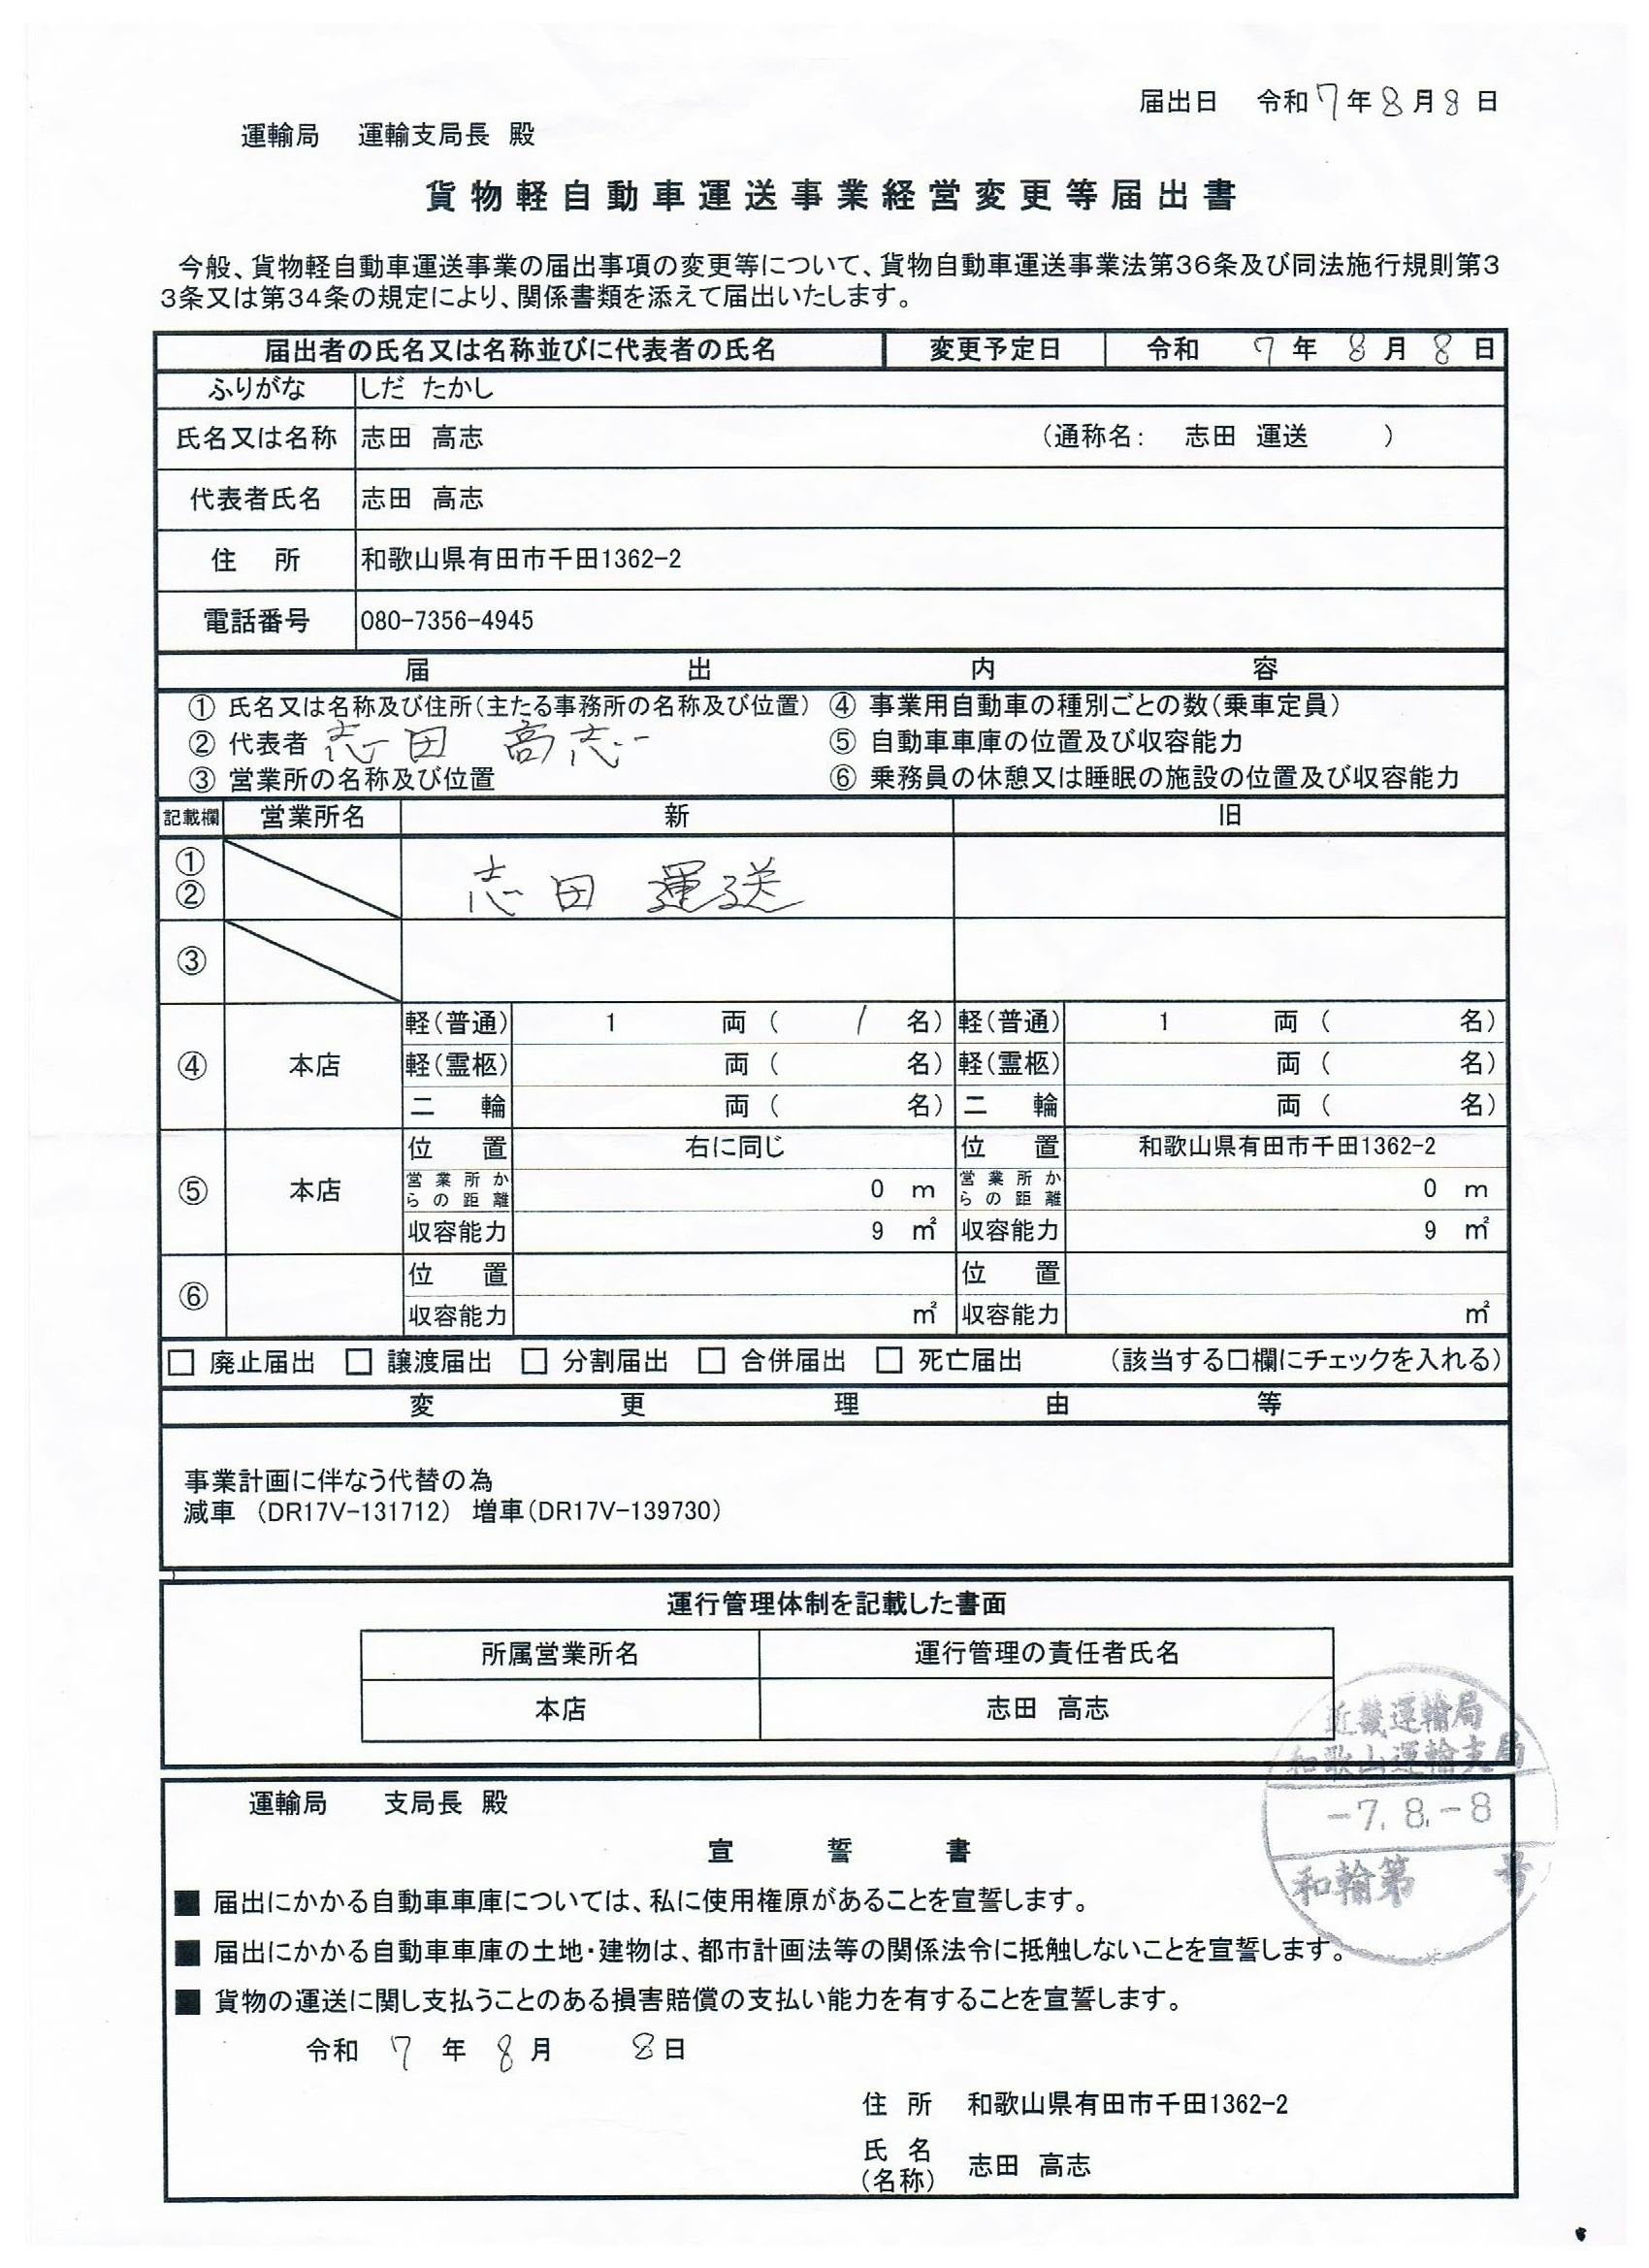 届出日 令和7年8月8日
運輸局 運輸支局長 殿
貨物軽自動車運送事業経営変更等届出書
今般、貨物軽自動車運送事業の届出事項の変更等について、貨物自動車運送事業法第36条及び同法施行規則第3
3条又は第34条の規定により、関係書類を添えて届出いたします。
届出者の氏名又は名称並びに代表者の氏名 変更予定日 令和 7 年 8 月 8 日
ふりがな しだ たかし
氏名又は名称 志田 高志 (通称名: 志田 運送 )
代表者氏名 志田 高志
住 所 和歌山県有田市千田1362-2
電話番号 080-7356-4945
届 出 内 容
① 氏名又は名称及び住所(主たる事務所の名称及び位置) ④ 事業用自動車の種別ごとの数(乗車定員)
② 代表者 志田 高志 ⑤ 自動車車庫の位置及び収容能力
③ 営業所の名称及び位置 ⑥ 乗務員の休憩又は睡眠の施設の位置及び収容能力
記載欄 営業所名 新 旧
①
② 志田 運送
③
軽(普通) 1 両 ( 1 名) 軽(普通) 1 両 ( 名)
④ 本店 軽(霊柩) 両 ( 名) 軽(霊柩) 両 ( 名)
二 輪 両 ( 名) 二 輪 両 ( 名)
位 置 右に同じ 位 置 和歌山県有田市千田1362-2
⑤ 本店 営業所からの距離 0 m 営業所からの距離 0 m
収容能力 9 ㎡ 収容能力 9 ㎡
⑥ 位 置 位 置
収容能力 ㎡ 収容能力 ㎡
□ 廃止届出 □ 譲渡届出 □ 分割届出 □ 合併届出 □ 死亡届出 (該当する□欄にチェックを入れる)
変 更 理 由 等
事業計画に伴なう代替の為
減車 (DR17V-131712) 増車(DR17V-139730)
運行管理体制を記載した書面
所属営業所名 運行管理の責任者氏名
本店 志田 高志
近畿運輸局
和歌山運輸支局
-7.8.-8
和輸第 号
運輸局 支局長 殿
宣 誓 書
■ 届出にかかる自動車車庫については、私に使用権原があることを宣誓します。
■ 届出にかかる自動車車庫の土地・建物は、都市計画法等の関係法令に抵触しないことを宣誓します。
■ 貨物の運送に関し支払うことのある損害賠償の支払い能力を有することを宣誓します。
令和 7 年 8 月 8日
住 所 和歌山県有田市千田1362-2
氏 名
(名称) 志田 高志